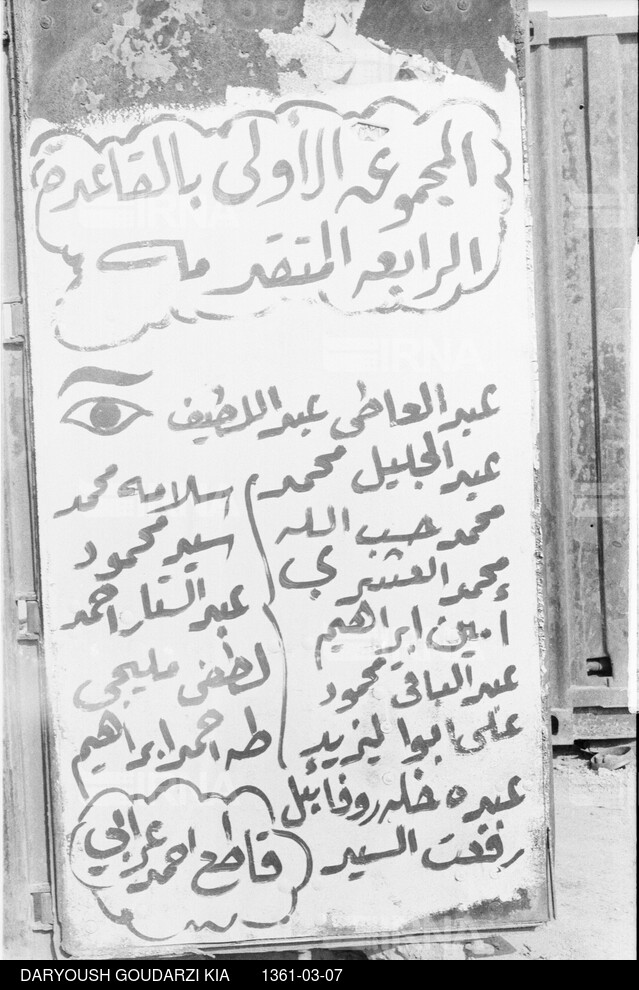 المجموعه الأولى بالقاعدة
الرابعه المتقدمه
عبد العاطى عبد اللطيف
عبد الجليل محمد
محمد حسب الله
محمد العشري
امين ابراهيم
عبد الباقى محمود
على ابو اليزيد
عبده خله روفائيل
رفعت السيد
اسلامه محمد
سيد محمود
عبد الستار احمد
لطفى مليجى
طه احمد ابراهيم
قاطع احمد عرابي
IRNA
DARYOUSH GOUDARZI KIA 1361-03-07